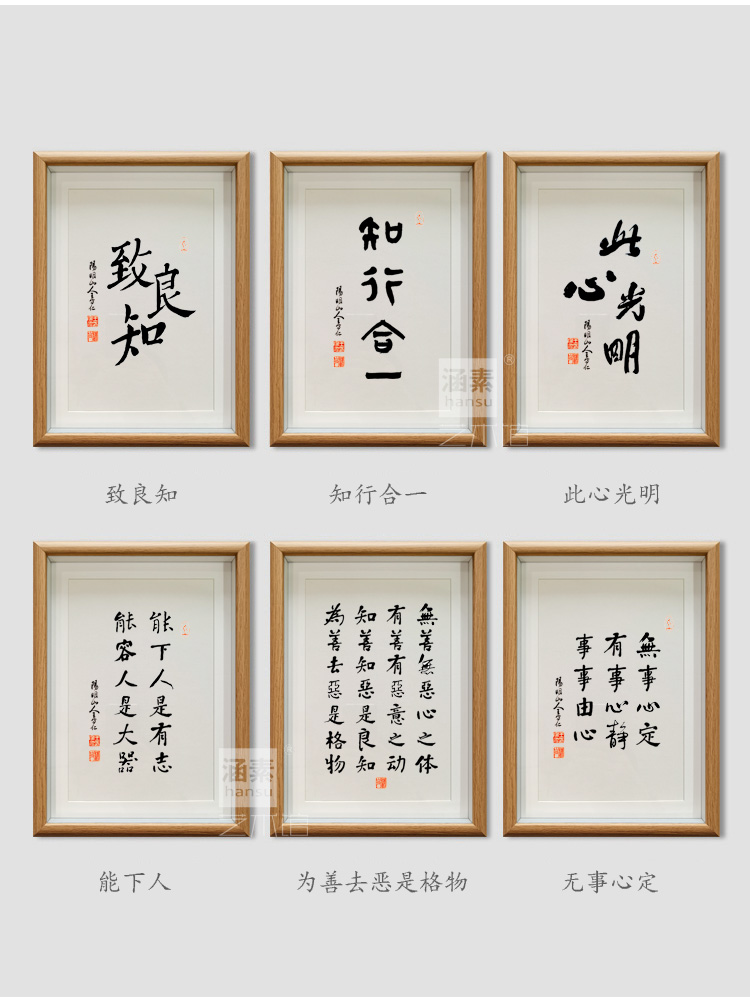 致良知
陽明山人王守仁
知行合一
陽明山人王守仁
此心光明
陽明山人王守仁
涵素®
hansu
致良知
知行合一
此心光明
能下人是有志
能容人是大器
陽明山人王守仁
無善無惡心之体
有善有惡意之动
知善知惡是良知
為善去惡是格物
無事心定
有事心静
事事由心
陽明山人王守仁
涵素
hansu
能下人
为善去恶是格物
无事心定